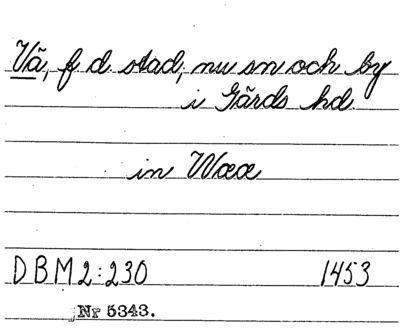 Vä, f d stad, nu sn och by
i Gärds hd.
in Wææ
DBM 2:230 1453
Nr 5343.